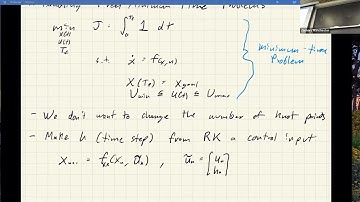 Handling Free/Minimum Time Problems
min J = ∫₀^{T_f} 1 dt
x(t)
u(t)
T_f
s.t. ẋ = f(x,u)
x(T_f) = x_goal
U_min ≤ u(t) ≤ U_max
minimum-time
Problem
- We don't want to change the number of knot points
- Make h (time step) from RK a control input
x_{n+1} = f_{RK}(x_n, ũ_n) , ũ_n = [u_n
h_n]